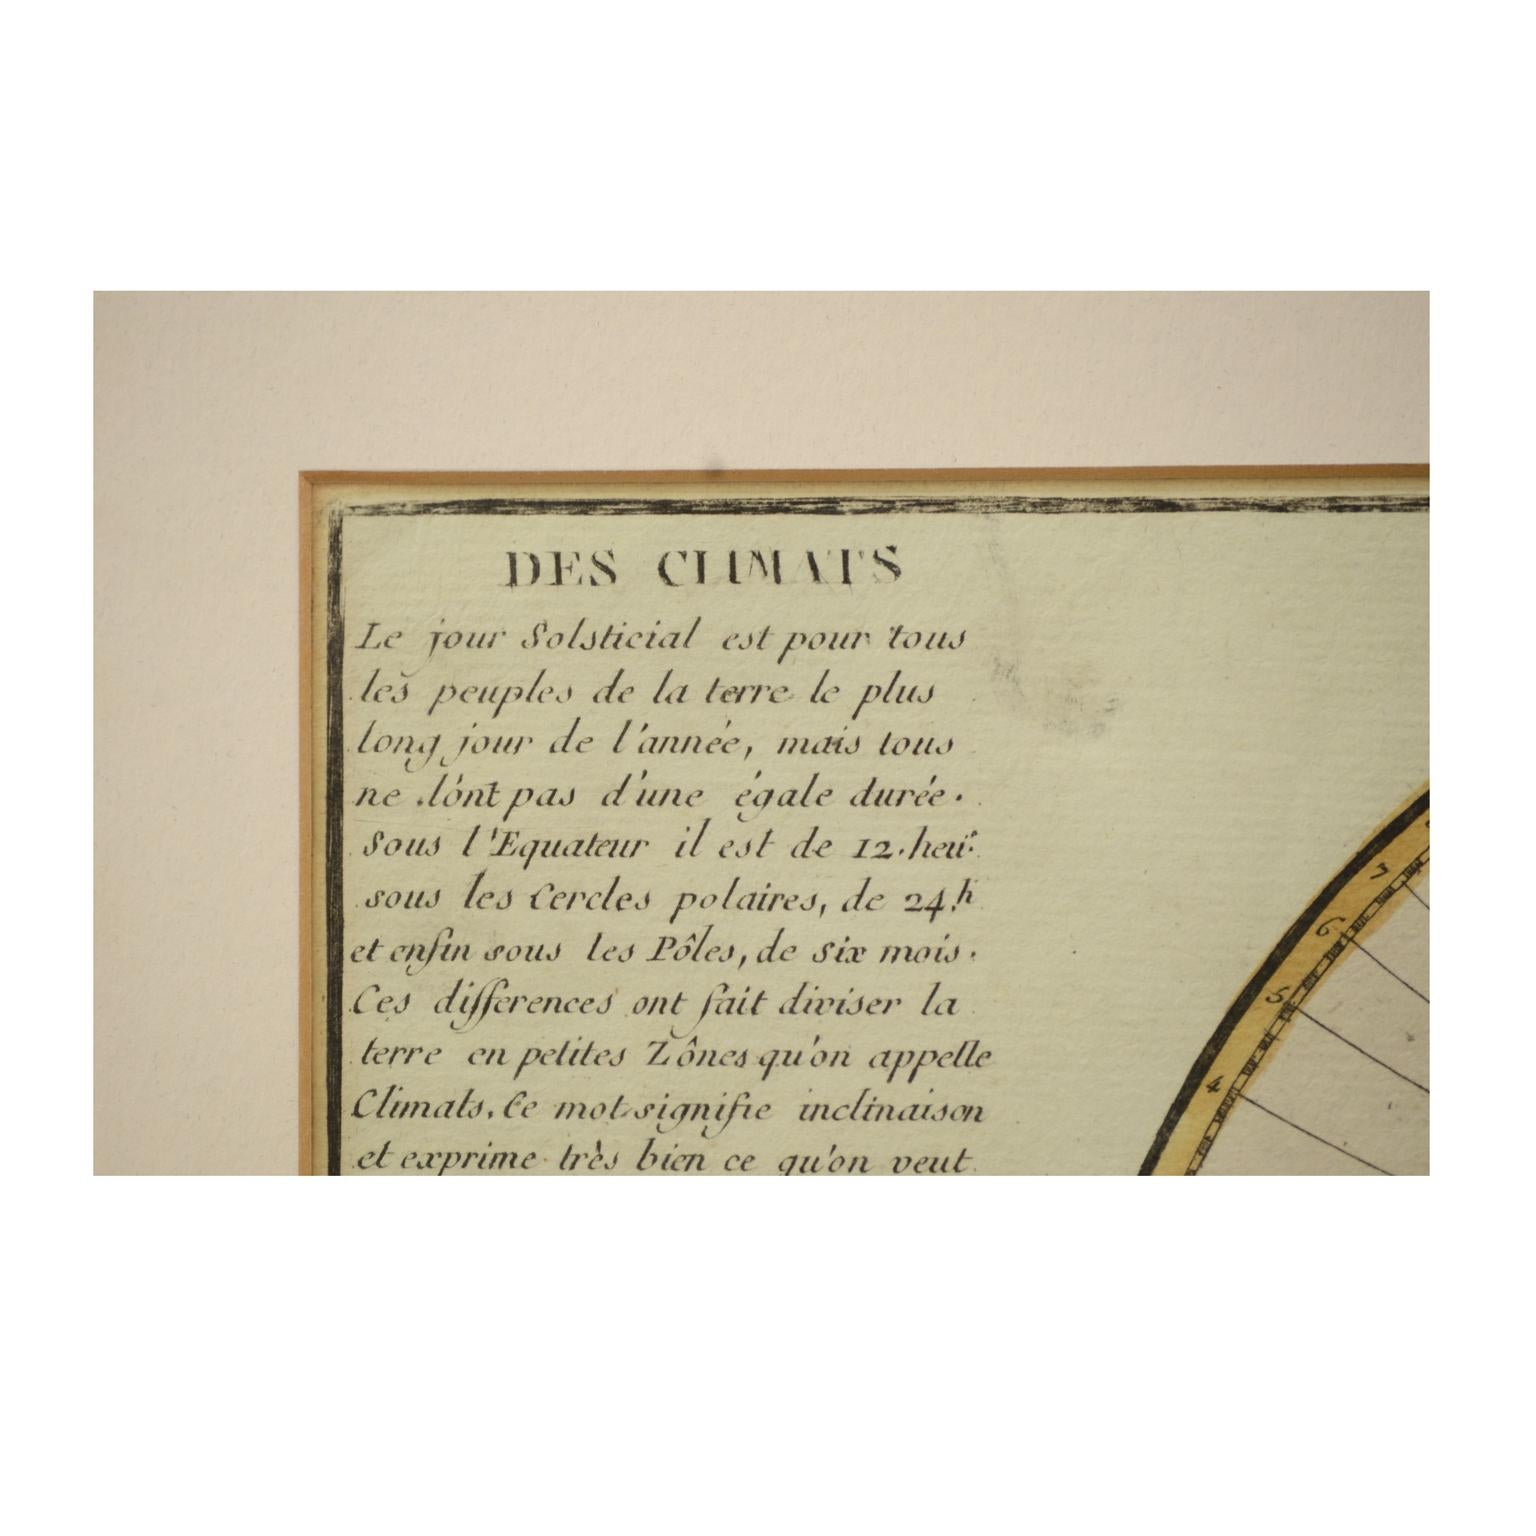 DES CLIMATS
Le jour Solsticial est pour tous
les peuples de la terre le plus
long jour de l'année, mais tous
ne sont pas d'une égale durée.
Sous l'Equateur il est de 12. heu.s
sous les Cercles polaires, de 24.h
et enfin sous les Pôles, de six mois.
Ces differences ont fait diviser la
terre en petites Zônes qu'on appelle
Climats. Ce mot signifie inclinaison
et exprime très bien ce qu'on veut
7
6
5
4